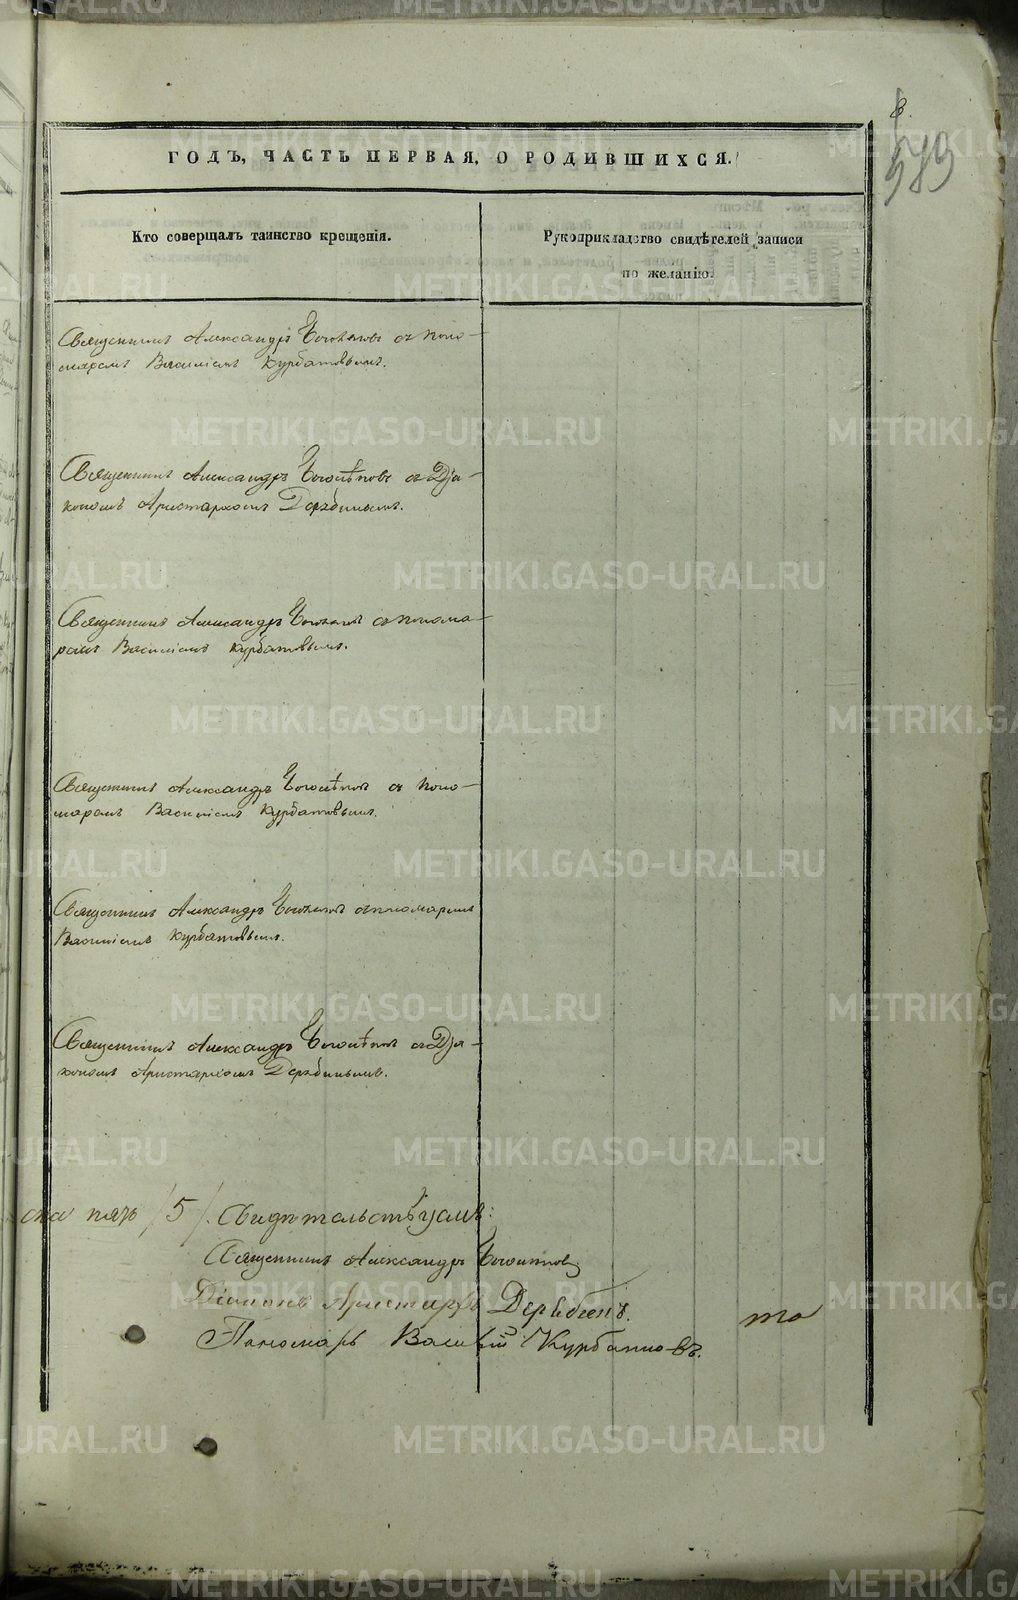 8.
583
ГОДЪ, ЧАСТЬ ПЕРВАЯ, О РОДИВШИХСЯ.
Кто совершалъ таинство крещенія.
Рукоприкладство свидѣтелей записи
по желанію.
Священникъ Александръ съ поно-
маремъ Василіемъ Курбатовымъ.
Священникъ Александръ съ Діа-
кономъ Аристархомъ Дерябинымъ.
Священникъ Александръ съ понома-
ремъ Василіемъ Курбатовымъ.
Священникъ Александръ съ поно-
маремъ Василіемъ Курбатовымъ.
Священникъ Александръ съ пономаремъ
Василіемъ Курбатовымъ.
Священникъ Александръ съ Діа-
кономъ Аристархомъ Дерябинымъ.
пять /5/. Свидѣтельствуемъ:
Священникъ Александръ
Діаконъ Аристархъ Дерябинъ.
то
Пономарь Василій Курбатовъ.
METRIKI.GASO-URAL.RU